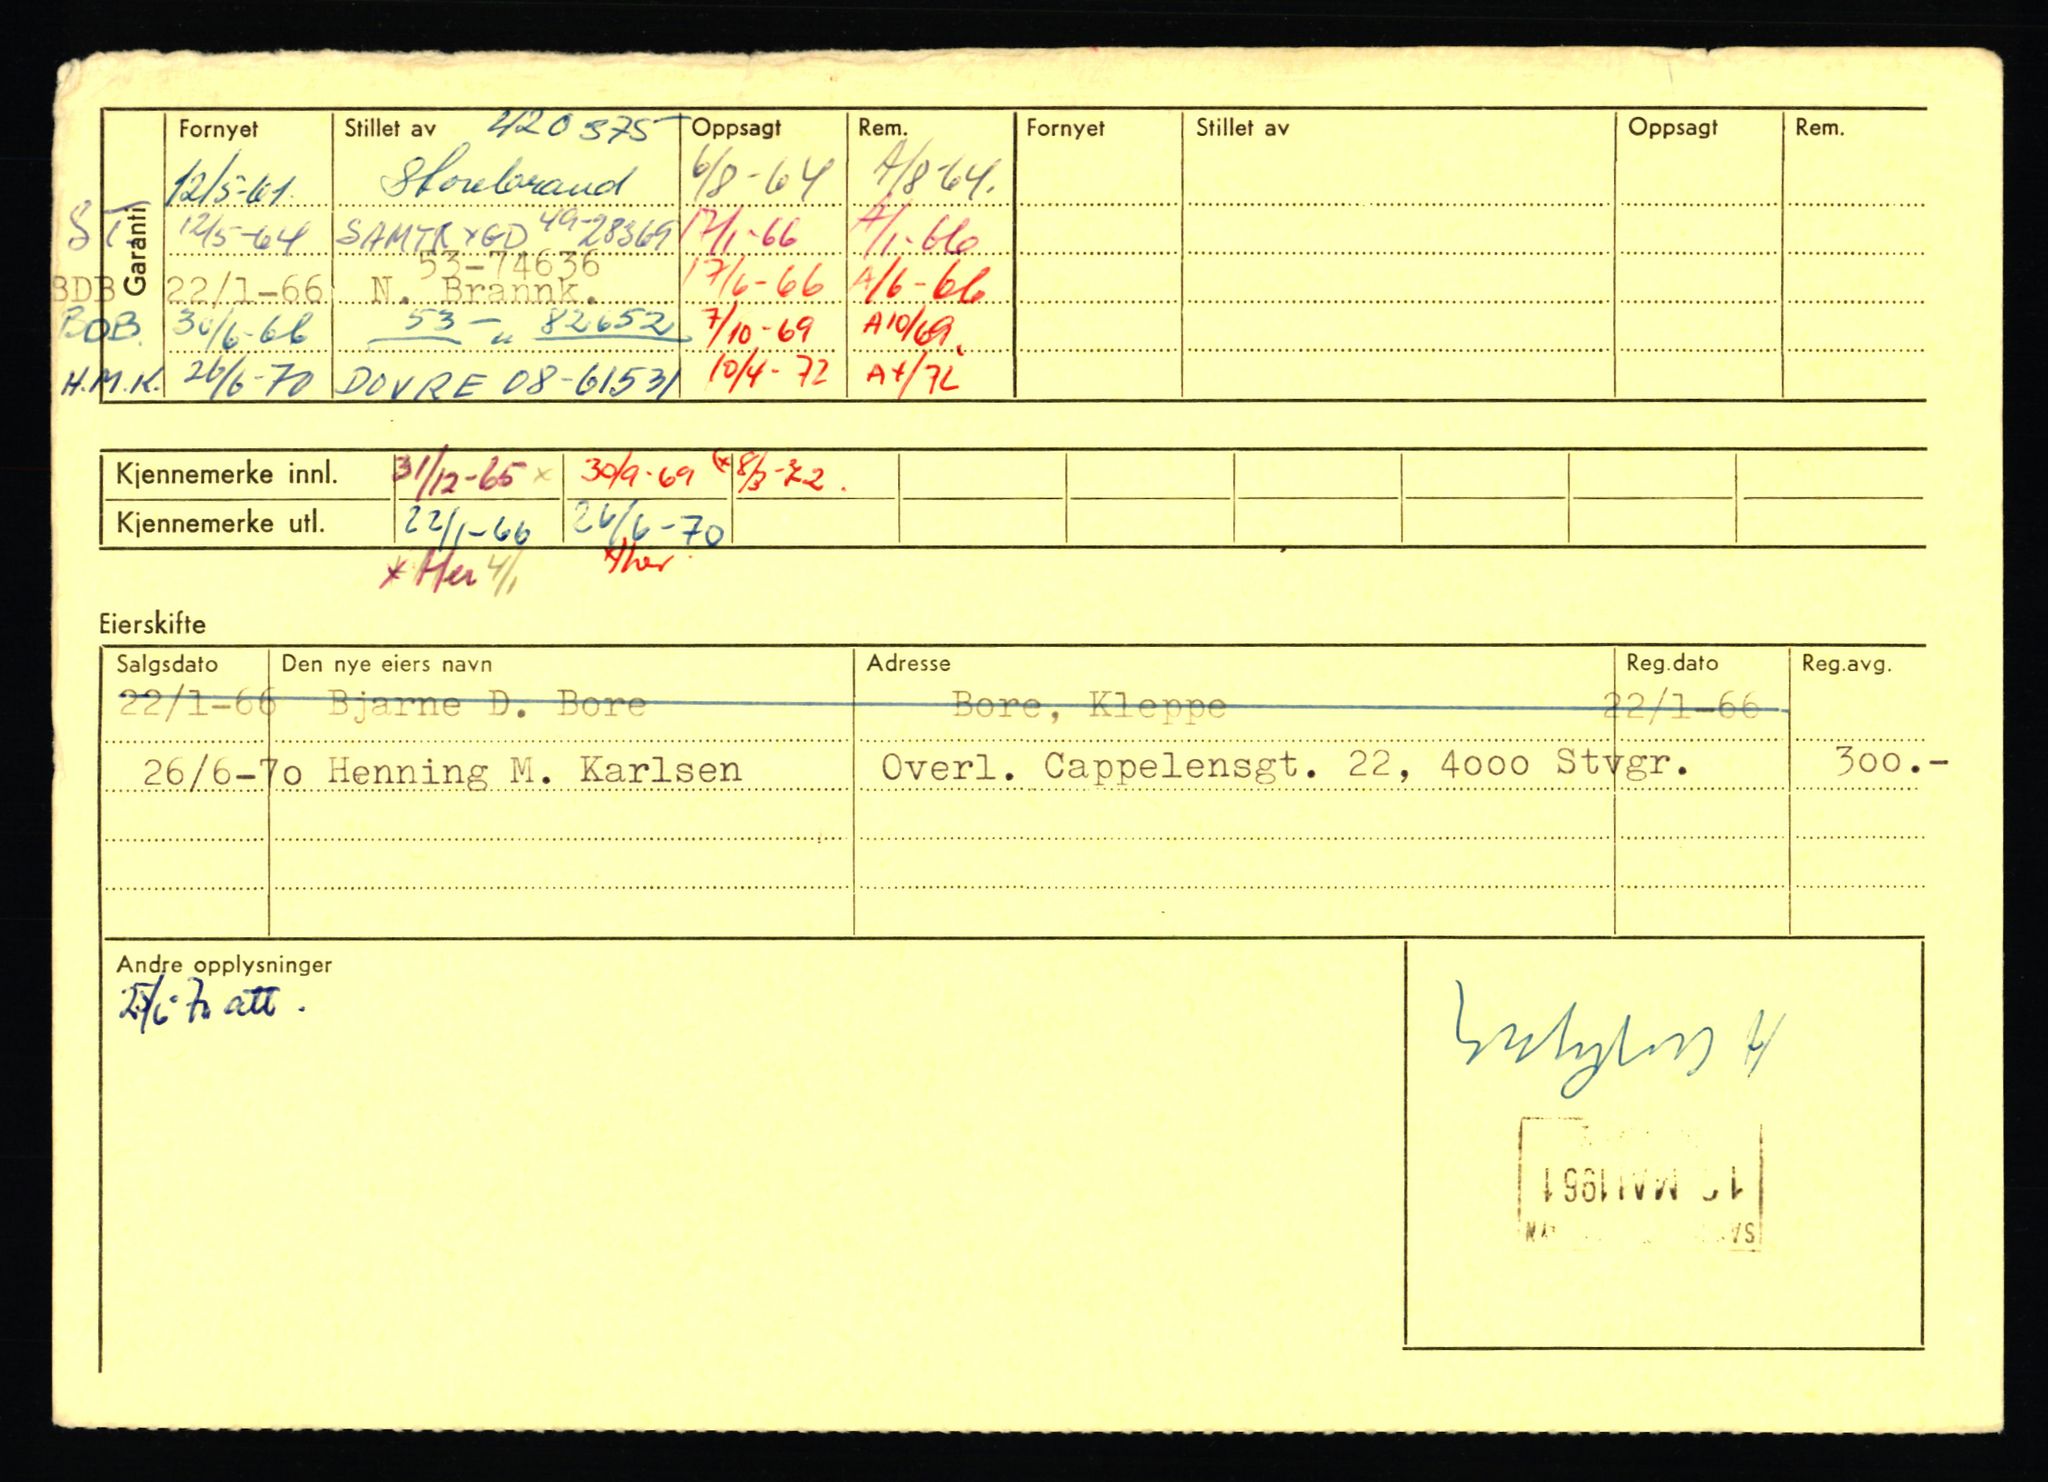 Garanti
Fornyet Stillet av 420375 Oppsagt Rem. Fornyet Stillet av Oppsagt Rem.
12/5-61 Storebrand 6/8-64 A/8-64.
ST. 12/5-64 SAMTRYGD 49-28369 17/1-66 A/1-66
53-74636
BDB 22/1-66 N. Brannk. 17/6-66 A/6-66
BDB. 30/6-66 53-„ 82652 7/10-69 A10/69
H.M.K. 26/6-70 DOVRE 08-61531 10/4-72 A4/72
Kjennemerke innl. 31/12-65 x 30/9-69 (x 8/3-72.
Kjennemerke utl. 22/1-66 26/6-70
x Her 4/1 x/her
Eierskifte
Salgsdato Den nye eiers navn Adresse Reg.dato Reg.avg.
22/1-66 Bjarne D. Bore Bore, Kleppe 22/1-66
26/6-70 Henning M. Karlsen Overl. Cappelensgt. 22, 4000 Stvgr. 300.-
Andre opplysninger
att.
MAI 1961